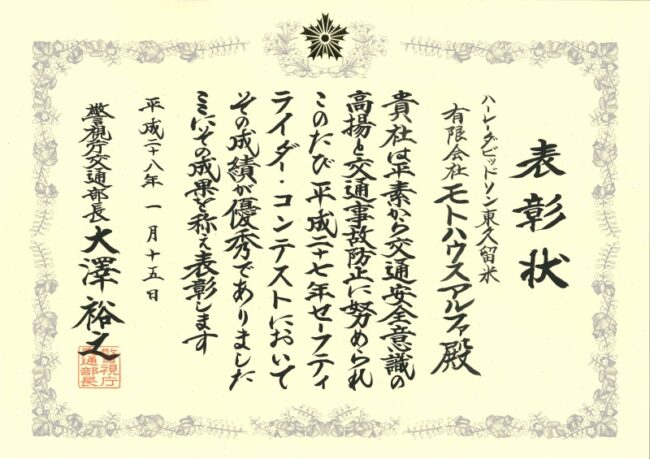 表彰状
ハーレーダビッドソン東久留米
有限会社モトハウスアルファ殿
貴社は平素から交通安全意識の
高揚と交通事故防止に努められ
このたび平成二十七年セーフティ
ライダー・コンテストにおいて
その成績が優秀でありました
ここにその成果を称え表彰します
平成二十八年一月十五日
警視庁交通部長 大澤裕之
警視庁
交通部長